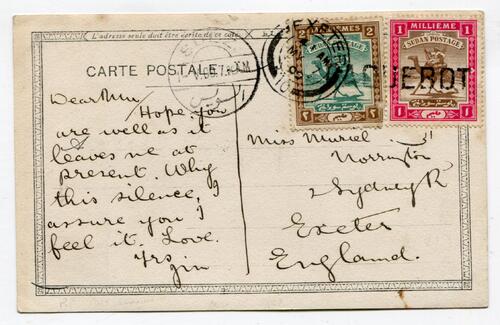 L'adresse seule doit être écrite de ce côté.
CARTE POSTALE
2 MILLIEMES 2
SUDAN POSTAGE
1 MILLIEME 1
SUDAN POSTAGE
EXETER
QUEROT
Dear
Hope you
are well as it
leaves me at
present. Why
this silence, I
assure you I
feel it. Love.
Yrs
Jim
Miss Muriel
Norrington
2 Sydney R
Exeter
England.